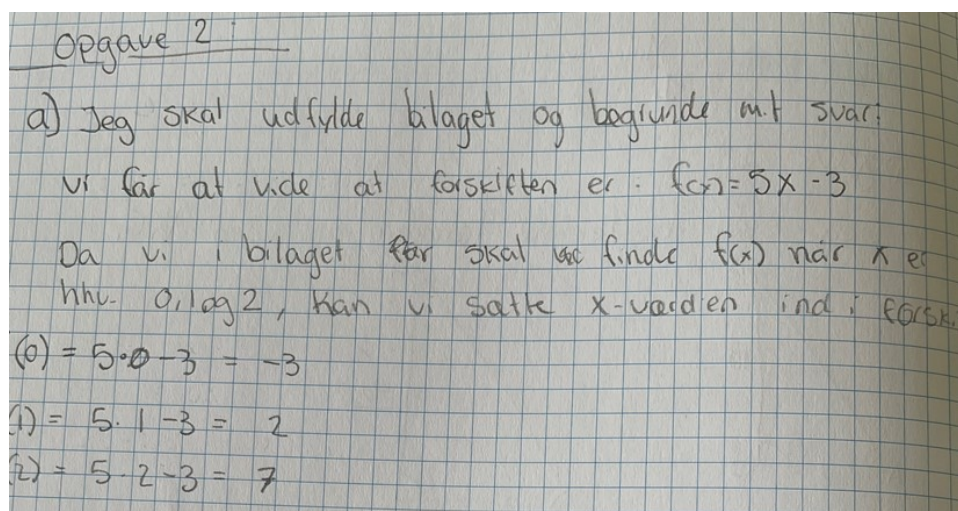 Opgave 2
a) Jeg skal udfylde bilaget og begrunde mit svar:
vi får at vide at forskiften er: f(x) = 5x - 3
Da vi i bilaget skal finde f(x) når x er
hhv. 0, 1 og 2, kan vi sætte x-værdien ind i forsk
(0) = 5·0 - 3 = -3
(1) = 5·1 - 3 = 2
(2) = 5·2 - 3 = 7